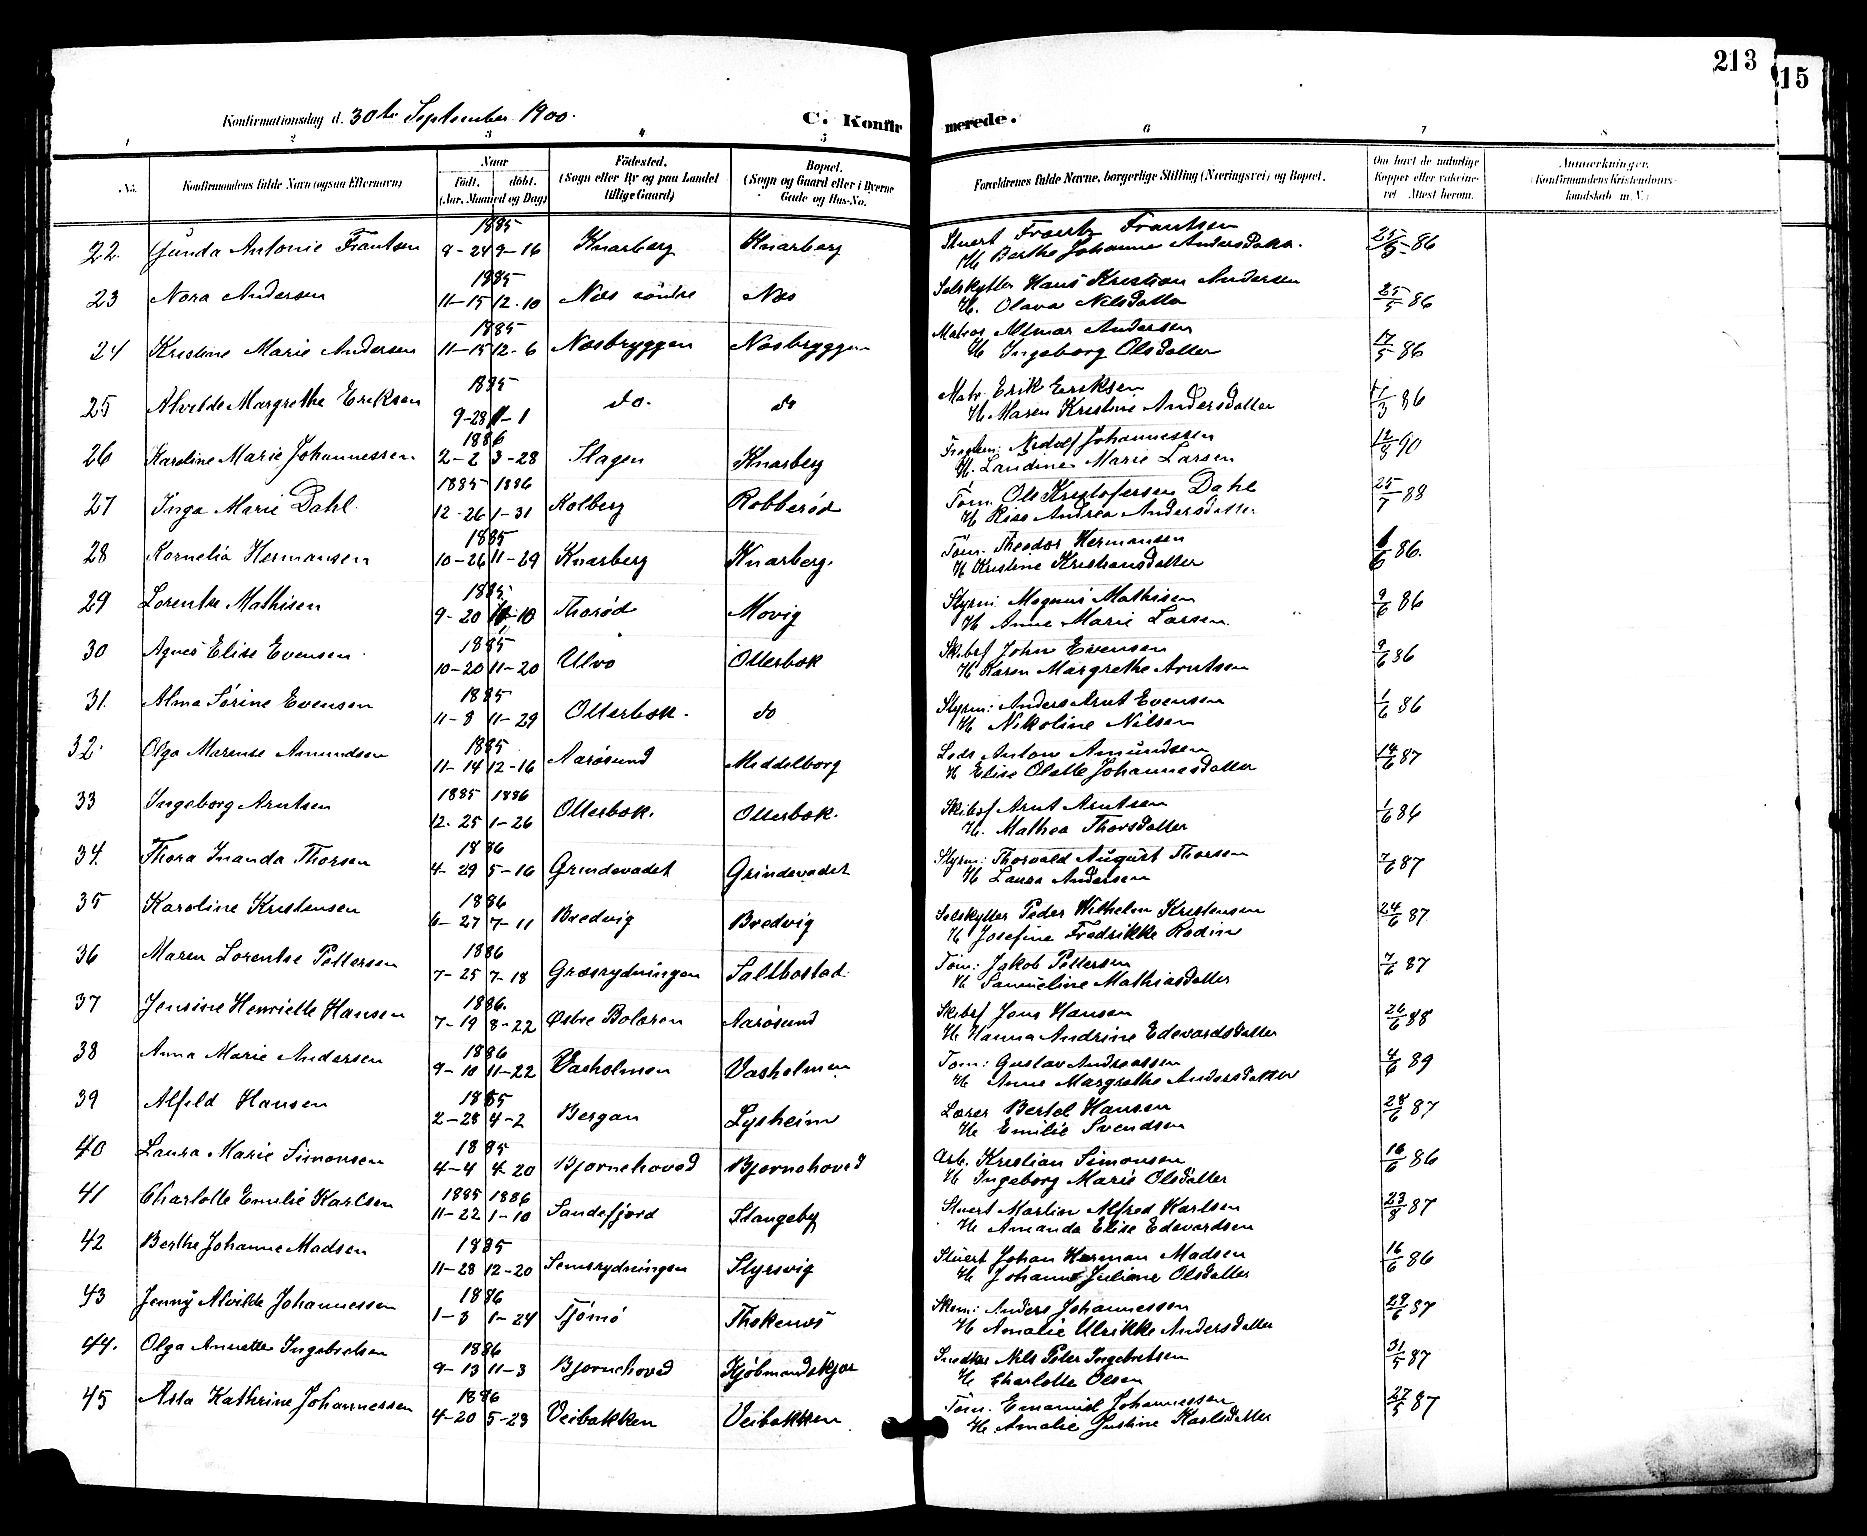 213
15
Konfirmationsdag d. 30te September 1900.
C. Konfirmerede.
1 2 3 4 5 6 7 8
No. Konfirmandens fulde Navn (ogsaa Efternavn) Naar Födt. döbt. (Aar, Maaned og Dag) Födested. (Sogn eller By og paa Landet tillige Gaard) Bopæl. (Sogn og Gaard eller i Byerne Gade og Hus-No. Forældrenes fulde Navne, borgerlige Stilling (Næringsvei) og Bopæl. Om havt de naturlige Kopper eller vakcineret Attest herom. Anmærkninger. (Konfirmandens Kristendomskundskab m. V.)
1885
22. Gunda Antonie Frantsen 9-24 9-16 Knarberg Knarberg Stuert Frantz Frantsen 25/5 86
H Berthe Johanne Andersdatter.
1885
23 Nora Andersen 11-15 12-10 Næs söndre Næs Selskytter Hans Kristian Andersen 25/5 86
H. Olava Nilsdatter
1885
24 Kristine Marie Andersen 11-15 12-6 Næsbryggen Næsbryggen Matros Almar Andersen 17/5 86
H Ingeborg Olsdatter
1885
25 Alvilde Margrethe Eriksen 9-28 11-1 do. do Matr. Erik Eriksen 11/3 86
H. Maren Kristine Andersdatter
1886
26 Karoline Marie Johannessen 2-2 3-28 Slagen Knarberg Johannessen 12/5 90
H. Landine Marie Larsen
1885 1886
27 Inga Marie Dahl. 12-26 1-31 Kolberg Robberød Töm. Ole Kristofersen Dahl 25/7 88
H Risa Andrea Andersdatter
1885
28 Kornelia Hermansen 10-26 11-29 Knarberg Knarberg. Töm. Theodor Hermansen 6/6 86.
H Kristine Kristiansdatter
1885
29 Lorentse Mathisen 9-20 -10 Thorød Movig Styrm Magnus Mathisen 9/6 86
H Anne Marie Larsen.
1885
30 Agnes Elise Evensen 10-20 11-20 Ulvø Otterbæk Skibsf John Evensen 9/6 86
H Karen Margrethe Arntsen
1885
31. Alma Sörine Evensen 11-8 11-29 Otterbæk. do Styrm: Anders Arnt Evensen 1/6 86
H Nikoline Nilsen
1885
32. Olga Marense Amundsen 11-14 12-16 Aarøsund Meddelborg Lods Anton Amundsen 14/6 87
H Elise Olette Johannesdatter
1885 1886
33 Ingeborg Arntsen 12-25 1-26 Otterbæk. Otterbæk. Skibsf Arnt Arntsen 1/6 86
H. Mathea Thorsdatter
1886
34. Thora Inanda Thorsen 4-29 5-16 Grindevadet Grindevadet Styrm: Thorvald August Thorsen 7/6 87
H Laura Andersen
1886
35 Karoline Kristensen 6-27 7-11 Bredvig Bredvig Selskytter Peder Wilhelm Kristensen 24/6 87
H Josefine Fredrikke Rodin
1886
36 Maren Lorentse Pettersen 7-25 7-18 Græsrydningen Saltbostad. Töm: Jakob Pettersen 7/6 87
H Samueline Mathiasdatter
1886.
37 Jensine Henriette Hansen 7-19 8-22 Østre Bolæren Aarøsund Skibsf Jens Hansen 26/6 88
H Hanna Andrine Edevardsdatter
1886
38 Anna Marie Andersen 9-10 11-22 Vasholmen Vasholmen Tom: Gustav Andreassen 4/6 89
H Anne Margrethe Andersdatter
1885
39 Alfild Hansen 2-28 4-2 Bergan Lysheim Lærer Bertel Hansen 28/6 87
H Emilie Svendsen
1885
40 Laura Marie Simonsen 4-4 4-20 Bjørnehoved Bjørnehoved Arb. Kristian Simonsen 16/6 86
H Ingeborg Marie Olsdatter
1885 1886
41 Charlotte Emilie Karlsen 11-22 1-10 Sandefjord Stangeby Stuert Martin Alfred Karlsen 23/8 87
H Amanda Elise Edevardsen
1885
42 Berthe Johanne Madsen 11-28 12-20 Semsrydningen Styrsvig Stuert Johan Herman Madsen 16/6 86
H Johanne Juliane Olsdatter
1886
43 Jenny Alvilde Johannessen 1-3 1-24 Tjömö Thokenæs Skom: Anders Johannessen 28/6 87
H Amalie Ulrikke Andersdatter
1886
44. Olga Annette Ingebretsen 9-13 11-3 Bjørnehoved Kjöbmandskjær Snedker Nils Peter Ingebretsen 31/5 87
H Charlotte Olsen
1886
45 Asta Kathrine Johannessen 4-20 5-23 Veibakken Veibakken Töm. Emanuel Johannessen 27/5 87
H. Amalie Justine Karlsdatter